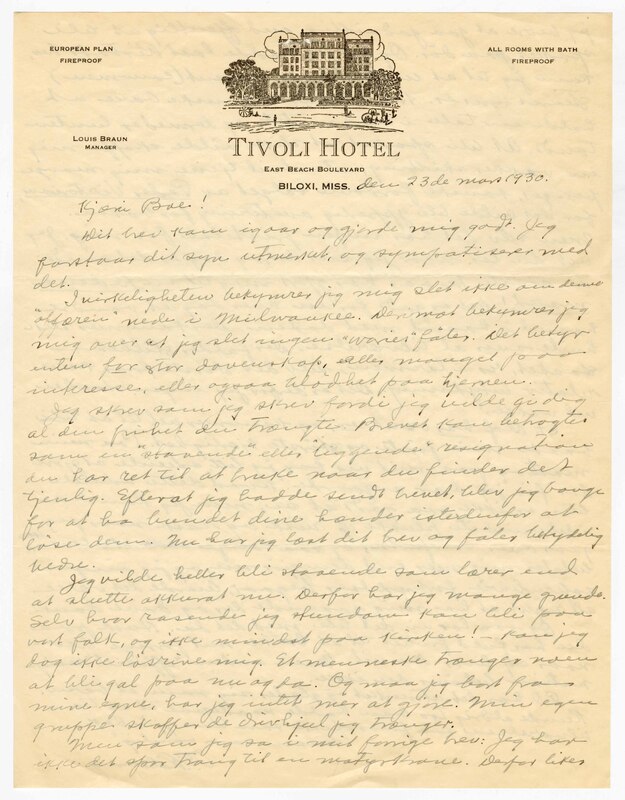 EUROPEAN PLAN
FIREPROOF
ALL ROOMS WITH BATH
FIREPROOF
LOUIS BRAUN
MANAGER
TIVOLI HOTEL
EAST BEACH BOULEVARD
BILOXI, MISS. den 23de mars 1930.
Kjære Boe!
Dit brev kom igaar og gjorde mig godt. Jeg
forstaar dit syn utmerket, og sympatiserer med
det.
I virkeligheten bekymrer jeg mig slet ikke om denne
"affæren" nede i Milwaukee. Derimot bekymrer jeg
mig over at jeg slet ingen "worries" føler. Det betyr
enten for stor dovenskap, eller mangel paa
interesse, eller ogsaa bløthet paa hjernen.
Jeg skrev som jeg skrev fordi jeg vilde gi dig
al den frihet du trængte. Brevet kan betragtes
som en "staaende" eller "liggende" resignation
du har ret til at bruke naar du finder det
tjenlig. Efterat jeg hadde sendt brevet, blev jeg bange
for at ha bundet dine hænder istedenfor at
løse dem. Nu har jeg læst dit brev og føler betydelig
bedre.
Jeg vilde heller bli staaende som lærer end
at slutte akkurat nu. Derfor har jeg mange grunde.
Selv hvor rasende jeg stundom kan bli paa
vort folk, og ikke mindst paa kirken! – kan jeg
dog ikke løsrive mig. Et menneske trænger noen
at bli gal paa nu og da. Og maa jeg bort fra
mine egne, har jeg intet mer at gjøre. Min egen
gruppe skaffer de drivhjul jeg trænger.
Men som jeg sa i mit forrige brev: Jeg har
ikke det spor trang til en martyrkrone. Derfor likes